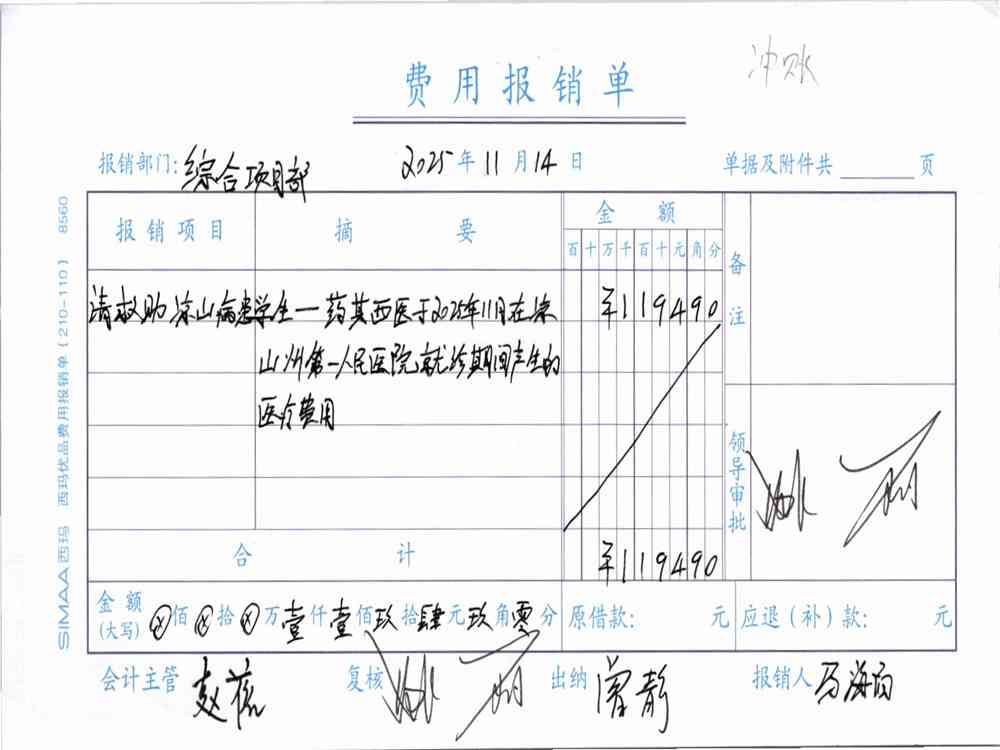 冲账
费用报销单
报销部门：综合项目部 2025年11月14日 单据及附件共 页
报销项目 摘要 金额 备注
百十万千百十元角分
请救助凉山病患学生一药其西医于2025年11月在凉
¥119490
山州第一人民医院就诊期间产生的
医疗费用
领导审批
合计 ¥119490
金额(大写) ⊗佰⊗拾⊗万壹仟壹佰玖拾肆元玖角零分 原借款： 元 应退（补）款： 元
会计主管 复核 出纳 曾静 报销人 马海
SIMAA西玛 西玛优品费用报销单（210-110） 8560